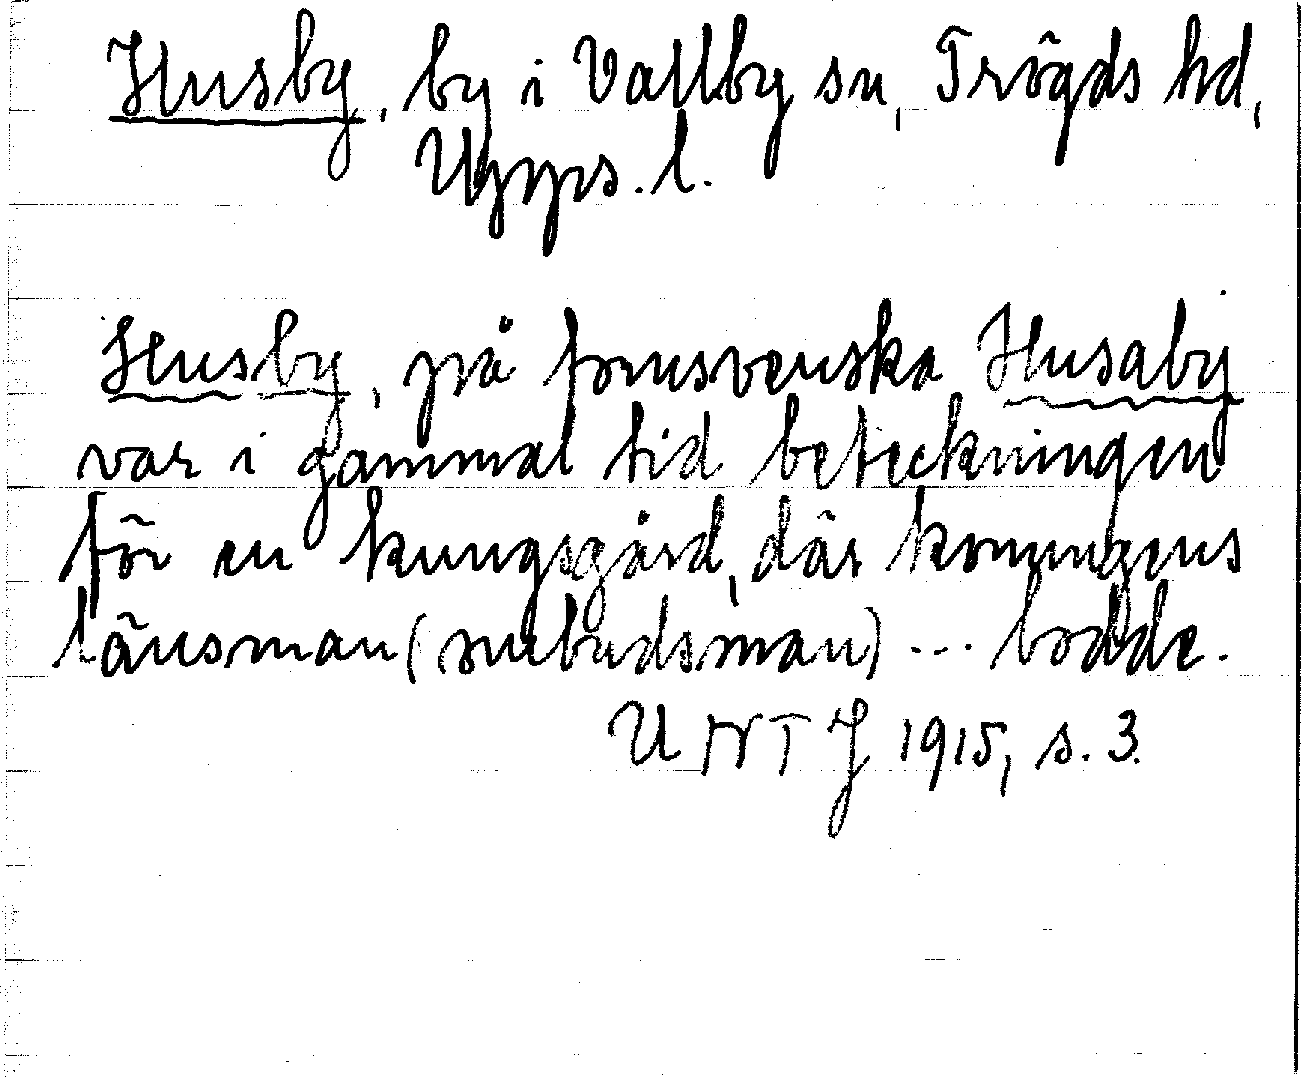 Husby, by i Vallby sn, Trögds hd,
Upps. l.
Husby, på fornsvenska Husaby
var i gammal tid beteckningen
för en kungsgård, där konungens
länsman (ombudsman) ... bodde.
UNTJ 1915, s. 3.